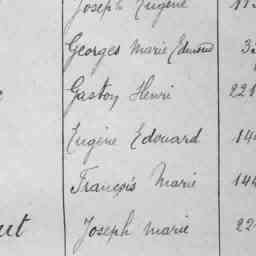 Joseph Eugène
Georges Marie Edmond
Gaston Henri 221
Eugène Edouard 14
François Marie 144
Joseph Marie 22